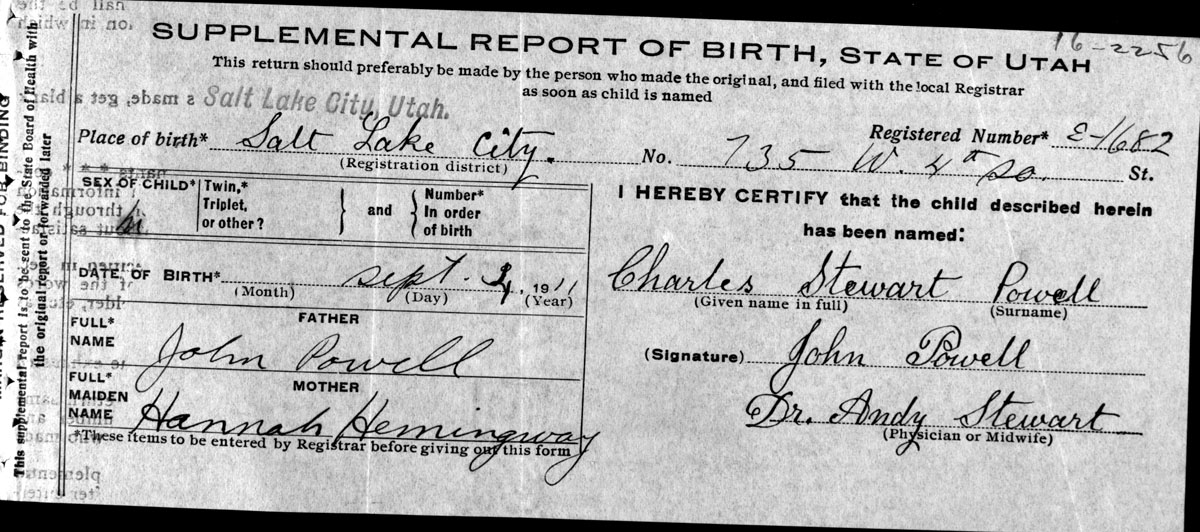 16-2256
SUPPLEMENTAL REPORT OF BIRTH, STATE OF UTAH
This return should preferably be made by the person who made the original, and filed with the local Registrar
as soon as child is named
Salt Lake City, Utah.
Registered Number* E-1682
Place of birth* Salt Lake City. No. 735 W. 4th So. St.
(Registration district)
SEX OF CHILD*
M
Twin,*
Triplet,
or other?
and
Number*
In order
of birth
I HEREBY CERTIFY that the child described herein
has been named:
DATE OF BIRTH* Sept. 4, 1911
(Month) (Day) (Year)
Charles Stewart Powell
(Given name in full) (Surname)
FATHER
FULL*
NAME John Powell
(Signature) John Powell
MOTHER
FULL*
MAIDEN
NAME Hannah Hemingway
Dr. Andy Stewart
(Physician or Midwife)
*These items to be entered by Registrar before giving out this form
This supplemental report is to be sent to the State Board of Health with
the original report or forwarded later
RESERVED FOR BINDING